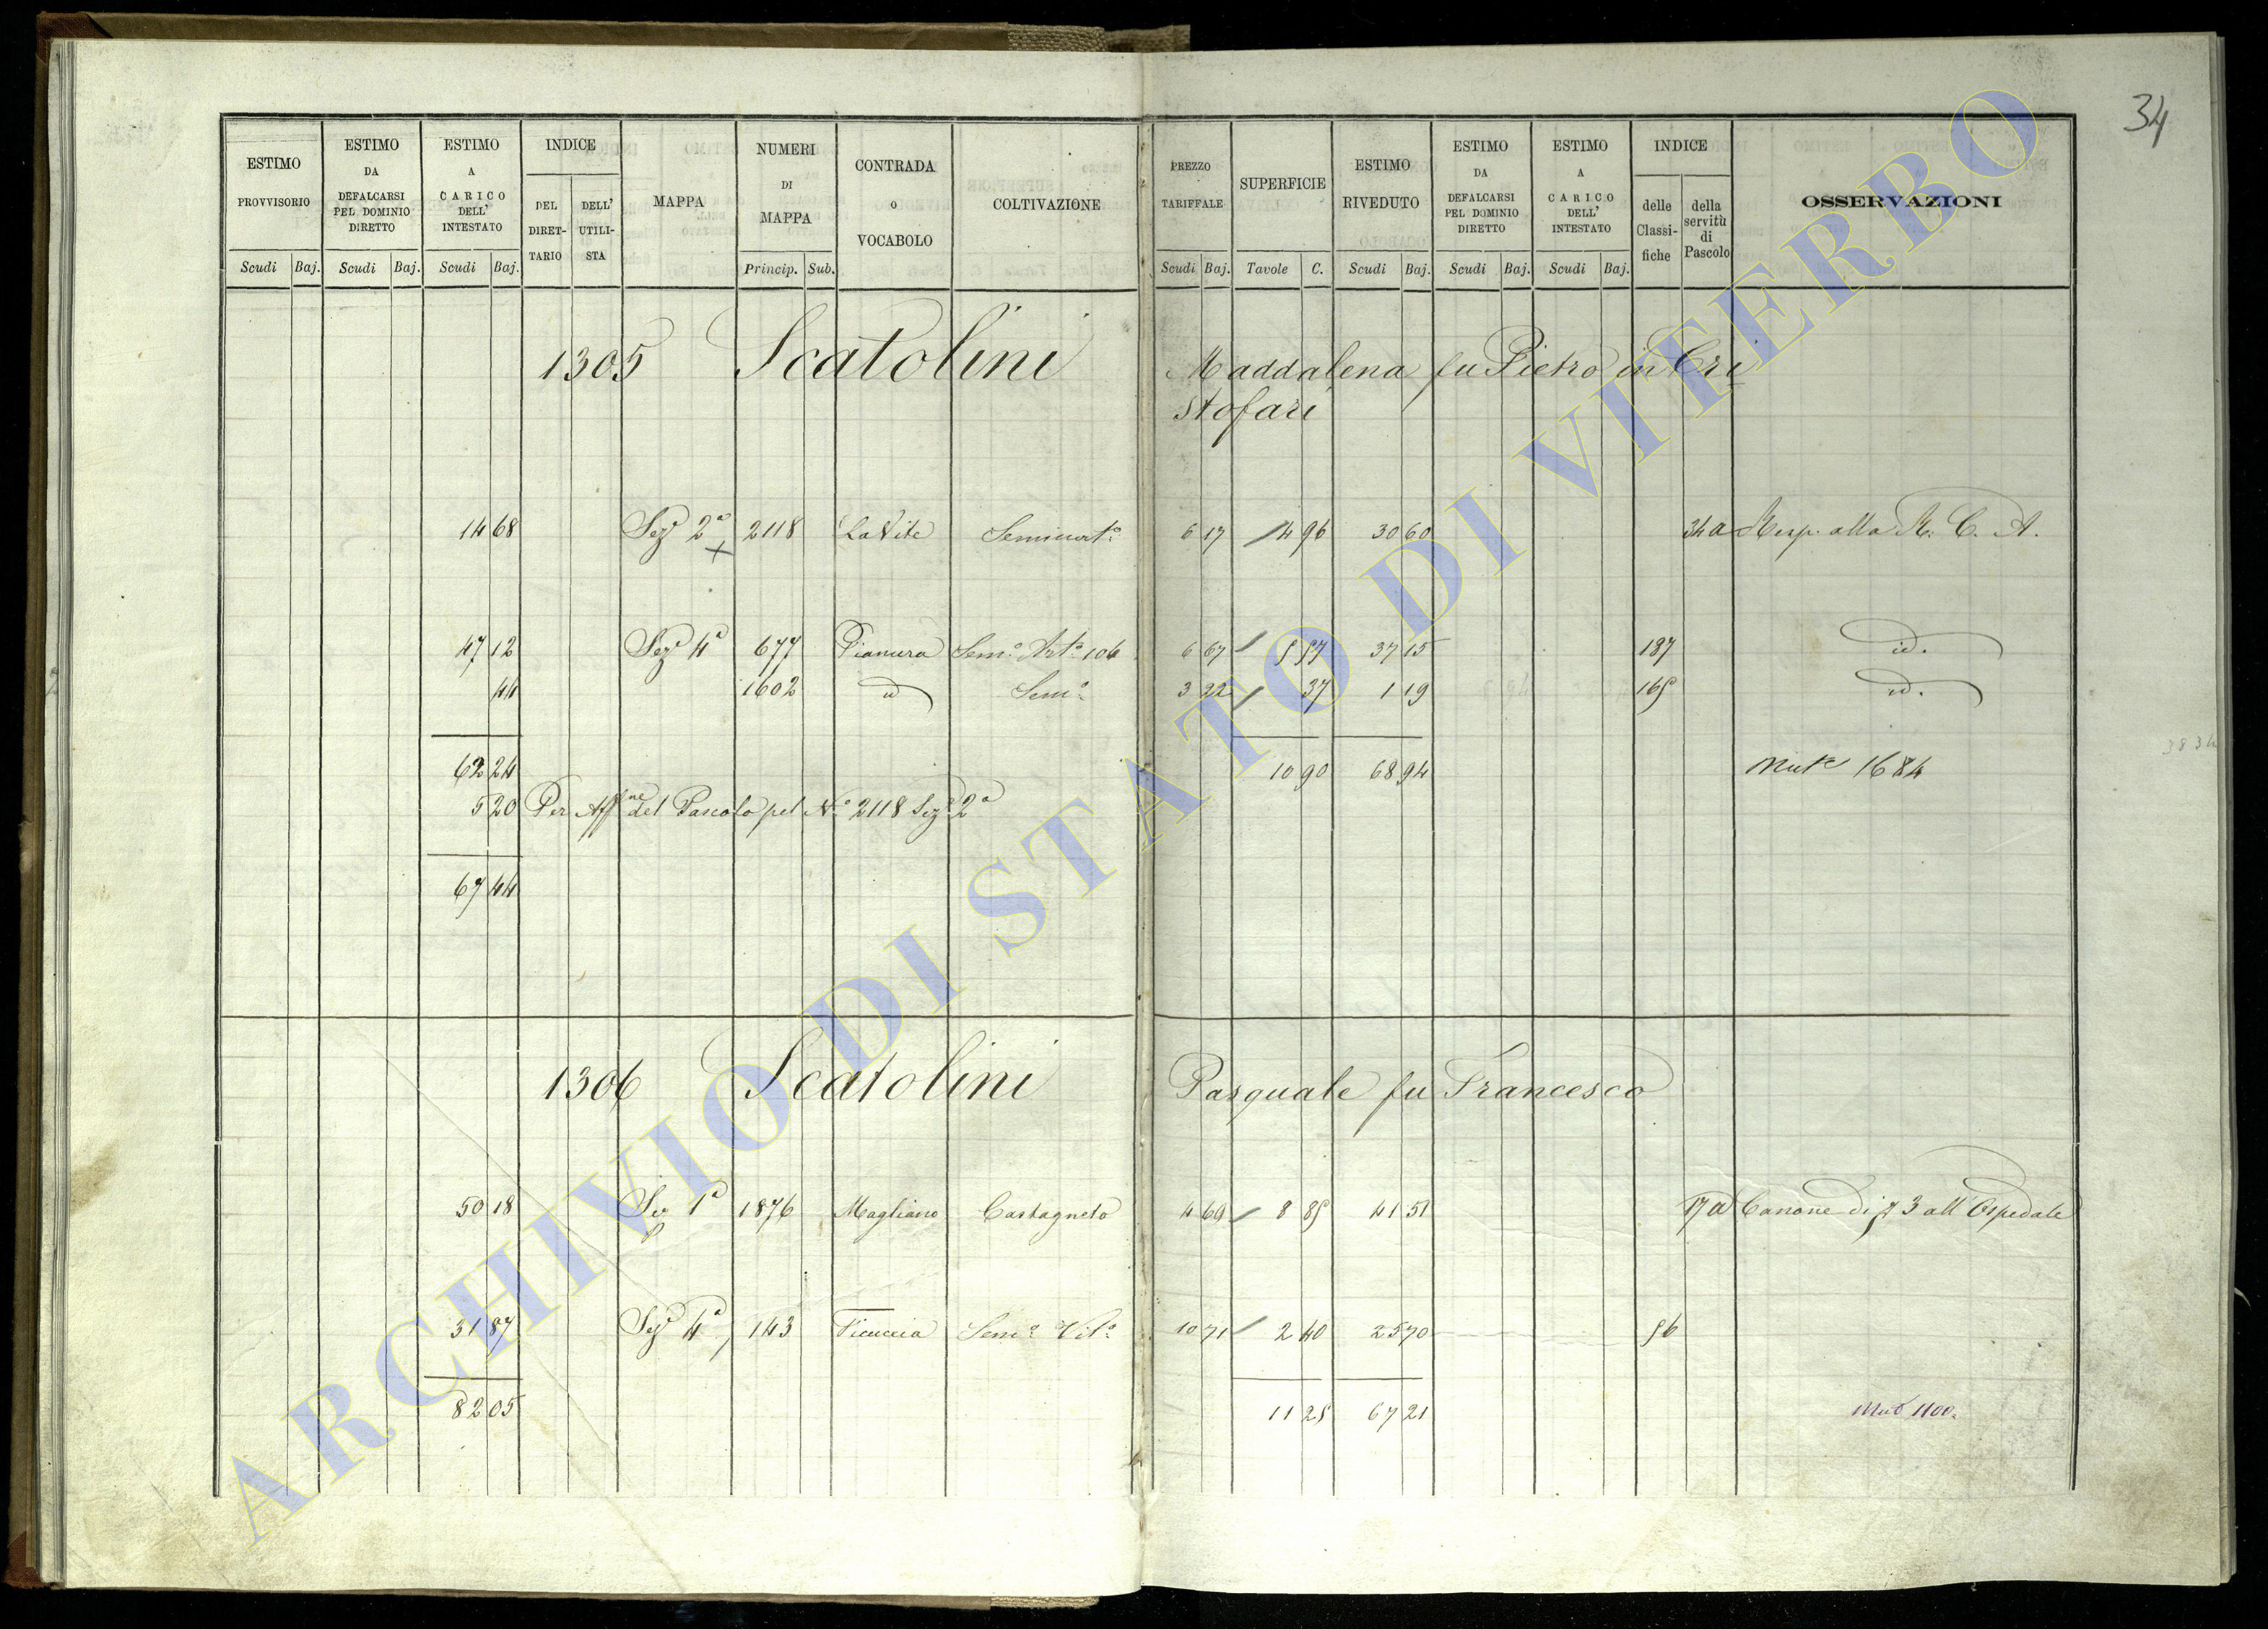 34
ESTIMO PROVVISORIO
ESTIMO DA DEFALCARSI PEL DOMINIO DIRETTO
ESTIMO A CARICO DELL' INTESTATO
INDICE
DEL DIRET-TARIO
DELL' UTILI-STA
MAPPA
NUMERI DI MAPPA
CONTRADA O VOCABOLO
COLTIVAZIONE
PREZZO TARIFFALE
SUPERFICIE
ESTIMO RIVEDUTO
ESTIMO DA DEFALCARSI PEL DOMINIO DIRETTO
ESTIMO A CARICO DELL' INTESTATO
INDICE
delle Classi-fiche
della servitù di Pascolo
OSSERVAZIONI
Scudi Baj. Scudi Baj. Scudi Baj. Princip. Sub. Scudi Baj. Tavole C. Scudi Baj. Scudi Baj. Scudi Baj.
1305 Scatolini Maddalena fu Pietro in Cri
stofari
14 68 Sez. 2a 2118 La Vite Seminato 6 17 4 96 30 60 34 a Resp. alla R. C. A.
47 12 Sez. 4a 677 Pianura Sem.o Art.o 106 6 67 5 57 37 15 187 id.
44 1602 id Sem.o 3 22 37 1 19 165 id.
62 24 10 90 68 94 Mut.e 1684
5 20 Per Aff.ne del Pascolo pel N.o 2118 Sez. 2a
67 44
1306 Scatolini Pasquale fu Francesco
50 18 Sez 1a 1876 Magliano Castagneto 4 69 8 85 41 51 17 a Canone di 3 all' Ospedale
31 87 Sez. 4a 143 Ficuccia Sem.o Vit.o 10 71 2 40 25 70 56
82 05 11 25 67 21 Mut. 1100
ARCHIVIO DI STATO DI VITERBO